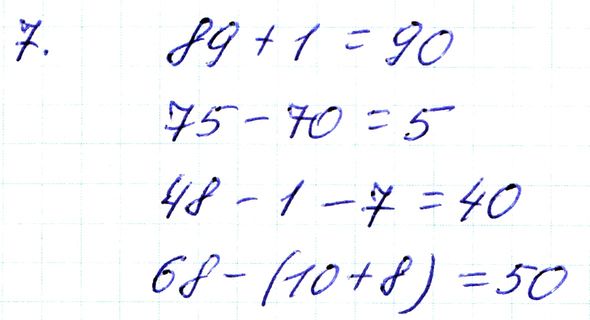 7. 89 + 1 = 90
75 - 70 = 5
48 - 1 - 7 = 40
68 - (10 + 8) = 50